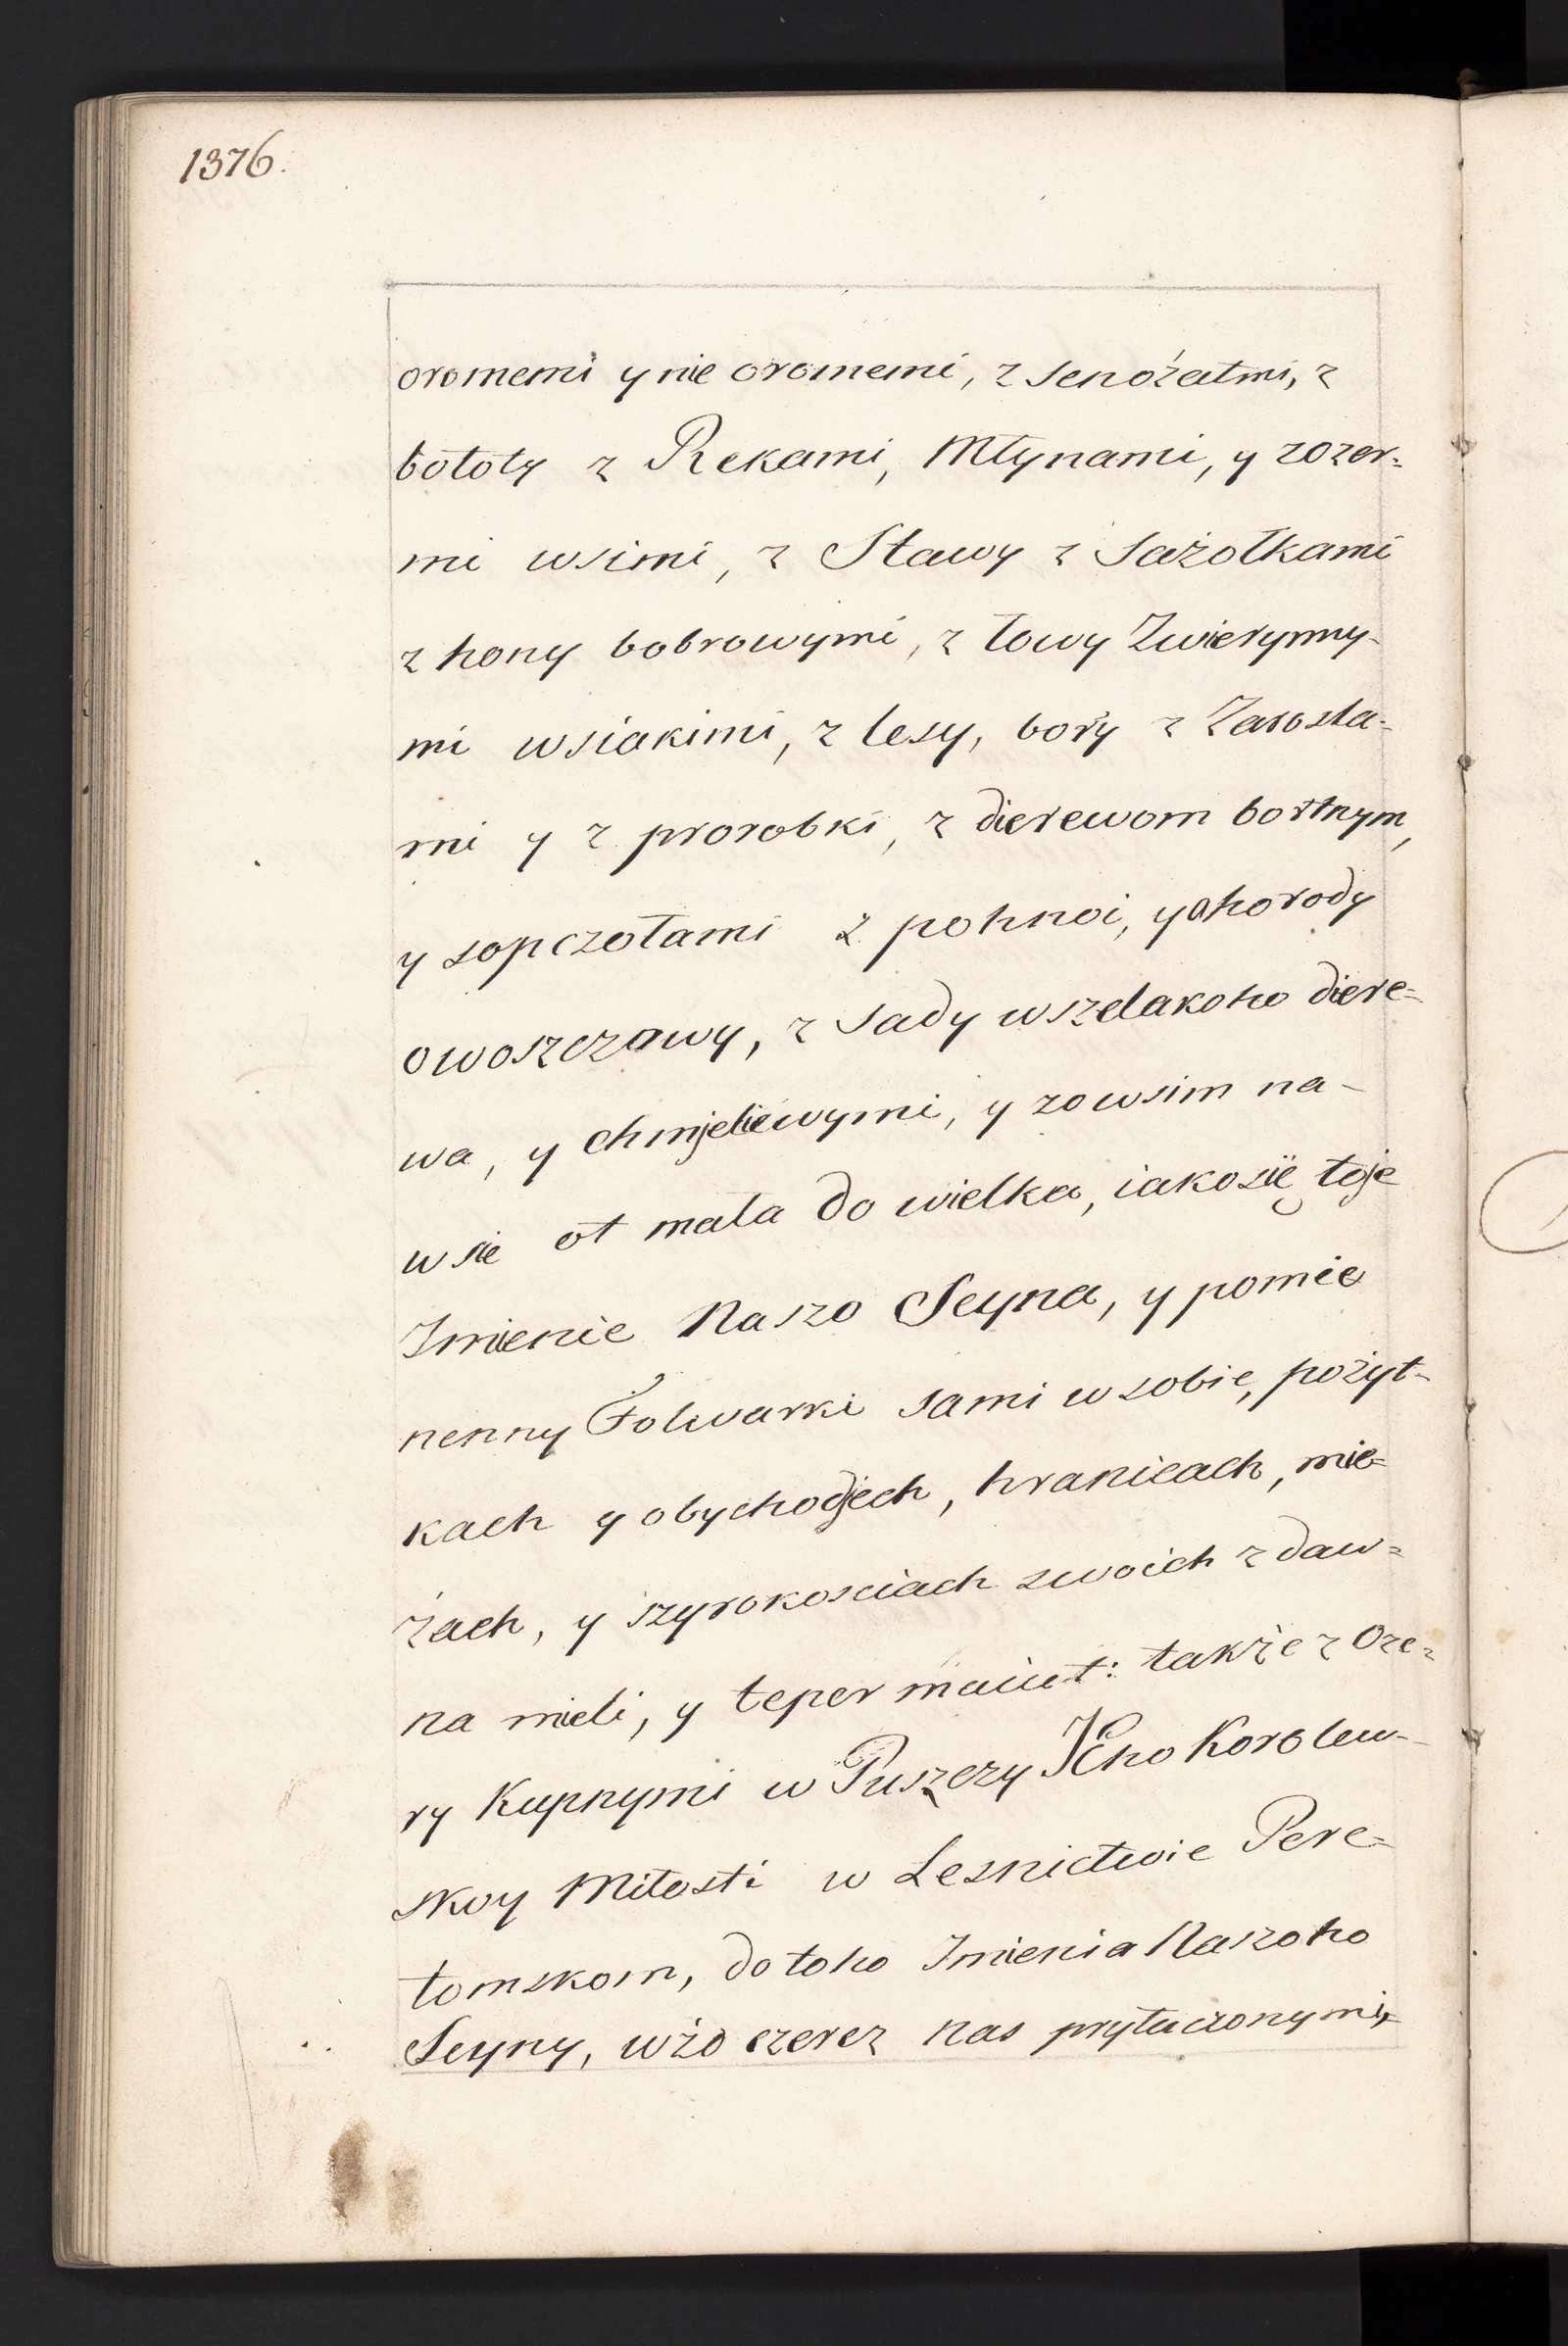 1376.
oromemi y nie oromemi, z senożatmi, z
bołoty z Rekami, Młynami, y zozer=
mi wsimi, z Stawy z Sażołkami
z hony bobrowymi, z łowy Zwierynny-
mi wsiakimi, z lesy, bory z Zarosla-
mi y z prorobki, z dierewom bortnym,
y sopczołami z pohnoi, y ohorody
owoszczowy, z sady wszelakoho diere=
wa, y chmjeliewymi, y zowsim na-
wsie ot mała do wielka, iakosię toje
Imienie Naszo Seyna, y pomie
nenny Folwarki sami wsobie, pożyt-
kach y obychodjech, hranicach, mie=
żach, y szyrokosciach swoich z daw=
na mieli, y teper maiut: także z Oze=
ry Kupnymi w Puszczy JEho Korolew-
skoy Miłosti w Lesnictwie Pere=
łomskom, do toho Imienia Naszoho
Seyny, wżo czerez nas pryłuczonymi,